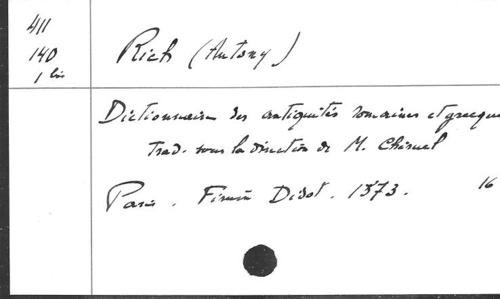 411
140
1 bis
Rich (Antony)
Dictionnaire des antiquités romaines et grecque
trad. sous la direction de M. Chéruel
Paris. Firmin Didot. 1873.
16